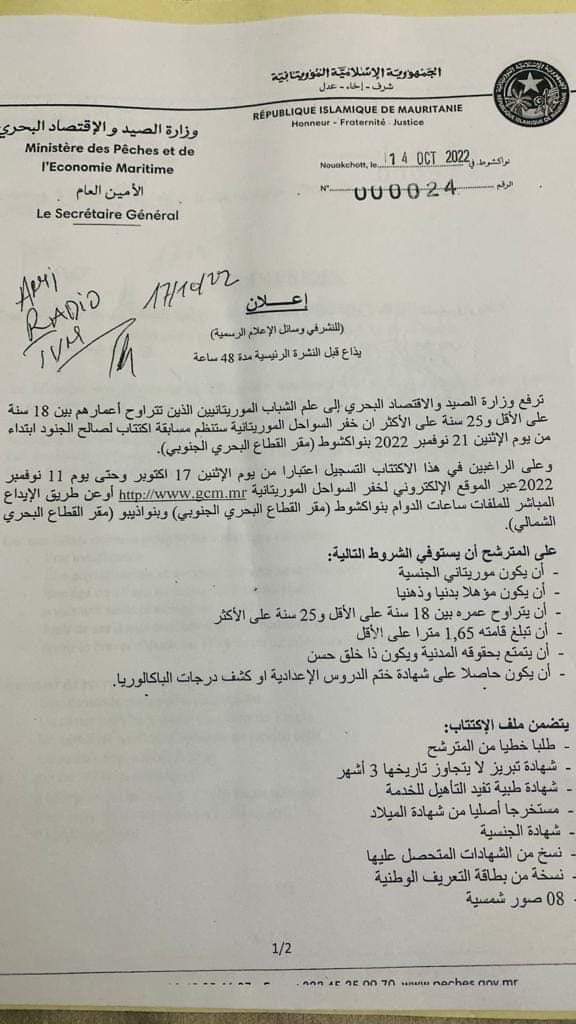 الجمهورية الإسلامية الموريتانية
شرف - إخاء - عدل
RÉPUBLIQUE ISLAMIQUE DE MAURITANIE
Honneur - Fraternité - Justice
وزارة الصيد والإقتصاد البحري
Ministère des Pêches et de
l'Economie Maritime
الأمين العام
Le Secrétaire Général
Nouakchott, le 14 OCT 2022 نواكشوط، في
N° 000024 الرقم
AMI
RADIO
TVM
17/10/22
إعلان
(للنشر في وسائل الإعلام الرسمية)
يذاع قبل النشرة الرئيسية مدة 48 ساعة
ترفع وزارة الصيد والاقتصاد البحري إلى علم الشباب الموريتانيين الذين تتراوح أعمارهم بين 18 سنة
على الأقل و25 سنة على الأكثر ان خفر السواحل الموريتانية ستنظم مسابقة اكتتاب لصالح الجنود ابتداء
من يوم الإثنين 21 نوفمبر 2022 بنواكشوط (مقر القطاع البحري الجنوبي).
وعلى الراغبين في هذا الاكتتاب التسجيل اعتبارا من يوم الإثنين 17 اكتوبر وحتى يوم 11 نوفمبر
2022عبر الموقع الإلكتروني لخفر السواحل الموريتانية http://www.gcm.mr أوعن طريق الإيداع
المباشر للملفات ساعات الدوام بنواكشوط (مقر القطاع البحري الجنوبي) وبنواذيبو (مقر القطاع البحري
الشمالي).
على المترشح أن يستوفي الشروط التالية:
- أن يكون موريتاني الجنسية
- أن يكون مؤهلا بدنيا وذهنيا
- أن يتراوح عمره بين 18 سنة على الأقل و25 سنة على الأكثر
- أن تبلغ قامته 1,65 مترا على الأقل
- أن يتمتع بحقوقه المدنية ويكون ذا خلق حسن
- أن يكون حاصلا على شهادة ختم الدروس الإعدادية او كشف درجات الباكالوريا.
يتضمن ملف الإكتتاب:
- طلبا خطيا من المترشح
- شهادة تبريز لا يتجاوز تاريخها 3 أشهر
- شهادة طبية تفيد التأهيل للخدمة
- مستخرجا أصليا من شهادة الميلاد
- شهادة الجنسية
- نسخ من الشهادات المتحصل عليها
- نسخة من بطاقة التعريف الوطنية
- 08 صور شمسية
1/2
www.peches.gov.mr